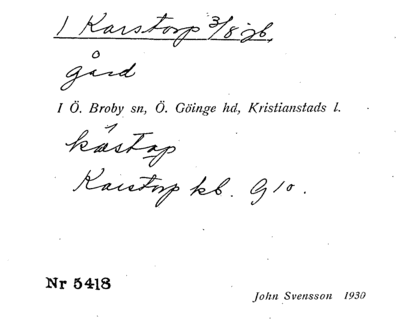 1 Karstorp 3/8 jb.
gård
I Ö. Broby sn, Ö. Göinge hd, Kristianstads l.
Karstorp kb. G10.
Nr 5418
John Svensson 1930